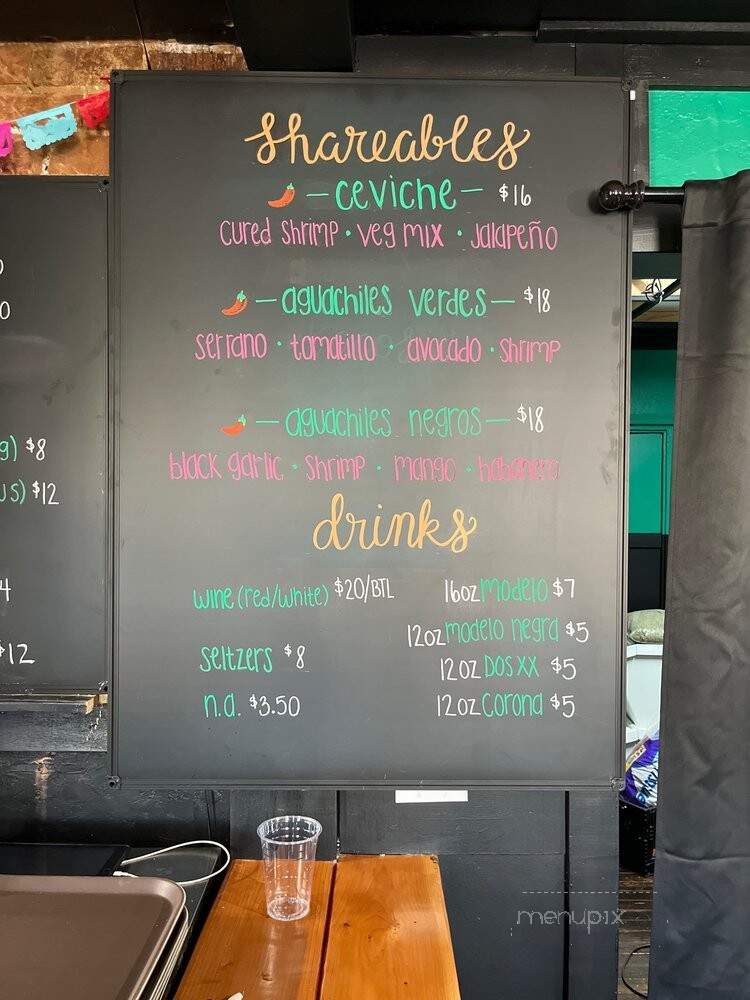 shareables
— ceviche — $16
cured shrimp · veg mix · jalapeño
— aguachiles verdes — $18
serrano · tomatillo · avocado · shrimp
— aguachiles negros — $18
black garlic · shrimp · mango · habanero
drinks
wine (red/white) $20/BTL
seltzers $8
n.a. $3.50
16oz modelo $7
12oz modelo negra $5
12oz DOS XX $5
12oz corona $5
g) $8
us) $12
4
$12
menupix